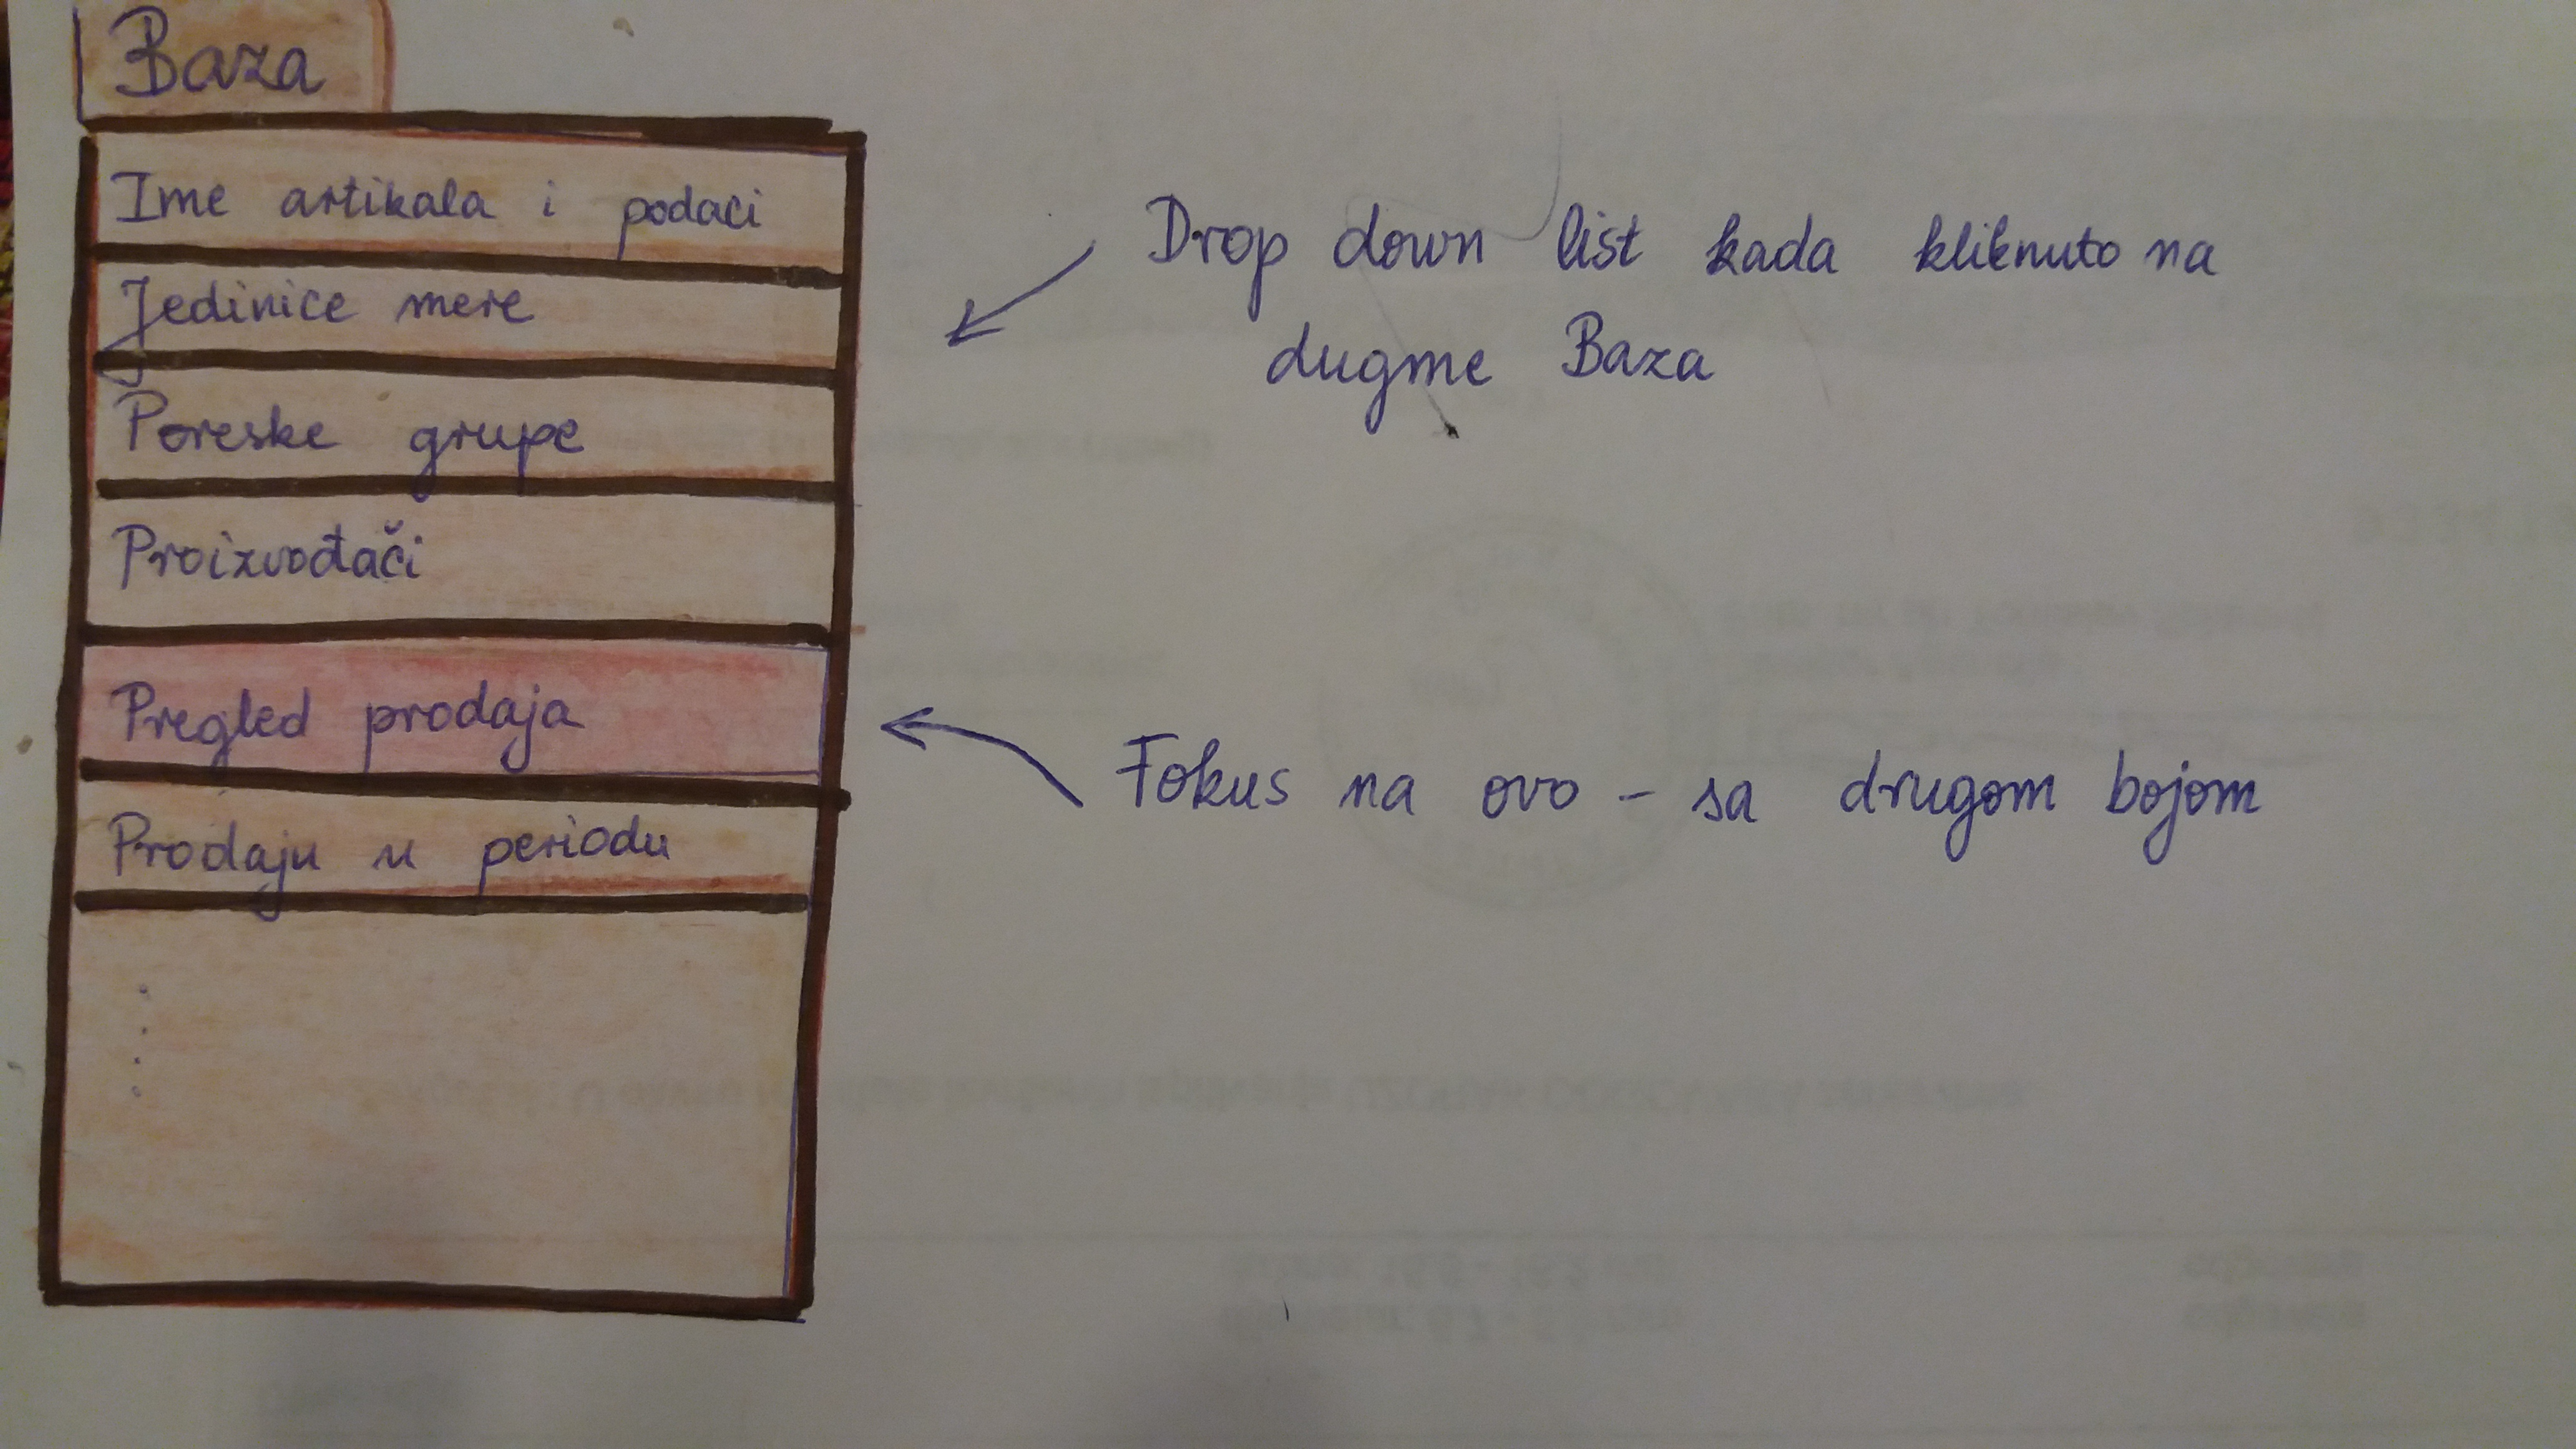 Baza
Ime artikala i podaci
Jedinice mere
Poreske grupe
Proizvođači
Pregled prodaja
Prodaju u periodu
Drop down list kada kliknuto na
dugme Baza
Fokus na ovo - sa drugom bojom